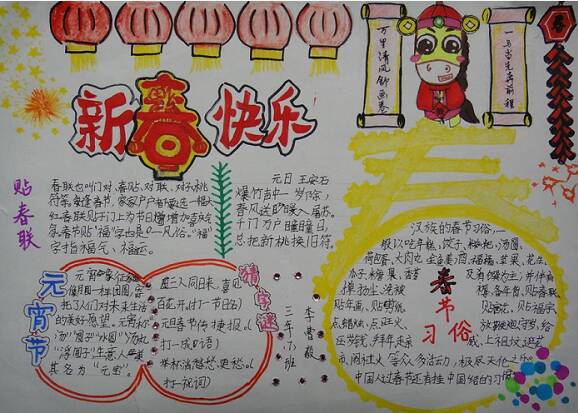 新春快乐
万里清风
一马当先奔前程
贴春联
春联也叫门对、春贴、对联、对子、桃
符等。每逢春节,家家户户都要选一幅大
红春联贴于门上,为节日增加喜庆气
氛。春节贴“福”字也是
“福”
字指福气、福运。
元日 王安石
爆竹声中一岁除,
春风送暖入屠苏。
千门万户曈曈日,
总把新桃换旧符。
元宵节
元宵
象征
月一样团圆,寄
托了人们对未来生活
的美好愿望。元宵称“汤
“汤圆”“汤丸”
“浮圆子”生意人
其名为“元宝”。
猜字谜
三人同日来,喜见
百花开(打一节日名)
元旦春节传捷报(
打一成语)
举杯
打一祝词)
李
三年
班
汉族的春节习俗,一
般以吃年糕、饺子、糍粑、汤圆、
荷包蛋、大肉丸、全鱼、美酒、福橘、苹果、花生、
瓜子、糖果、香茗
及
为主;并伴有
掸扬尘、洗被
贴年画、贴剪纸、
点蜡烛、点旺火、
年、贴春联、
贴福字、
放鞭炮、守岁、给
压岁钱、拜年、走亲
戚、上祖坟、逛花
市、闹社火等众多活动,极尽天伦之乐
中国人过春节还有挂中国结的习
春节习俗